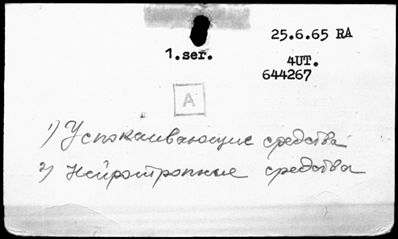 25.6.65 RA
1.ser.
4UT.
644267
A
1) Успокаивающие средства
2) Нейротропные средства